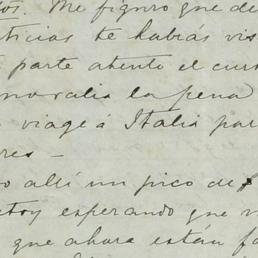 os. Me figuro que de
ticias te habrás vis
parte atento el cur
no valia la pena
viage á Italia par
res –
o allí un pico de
stoy esperando que
que ahora están fa